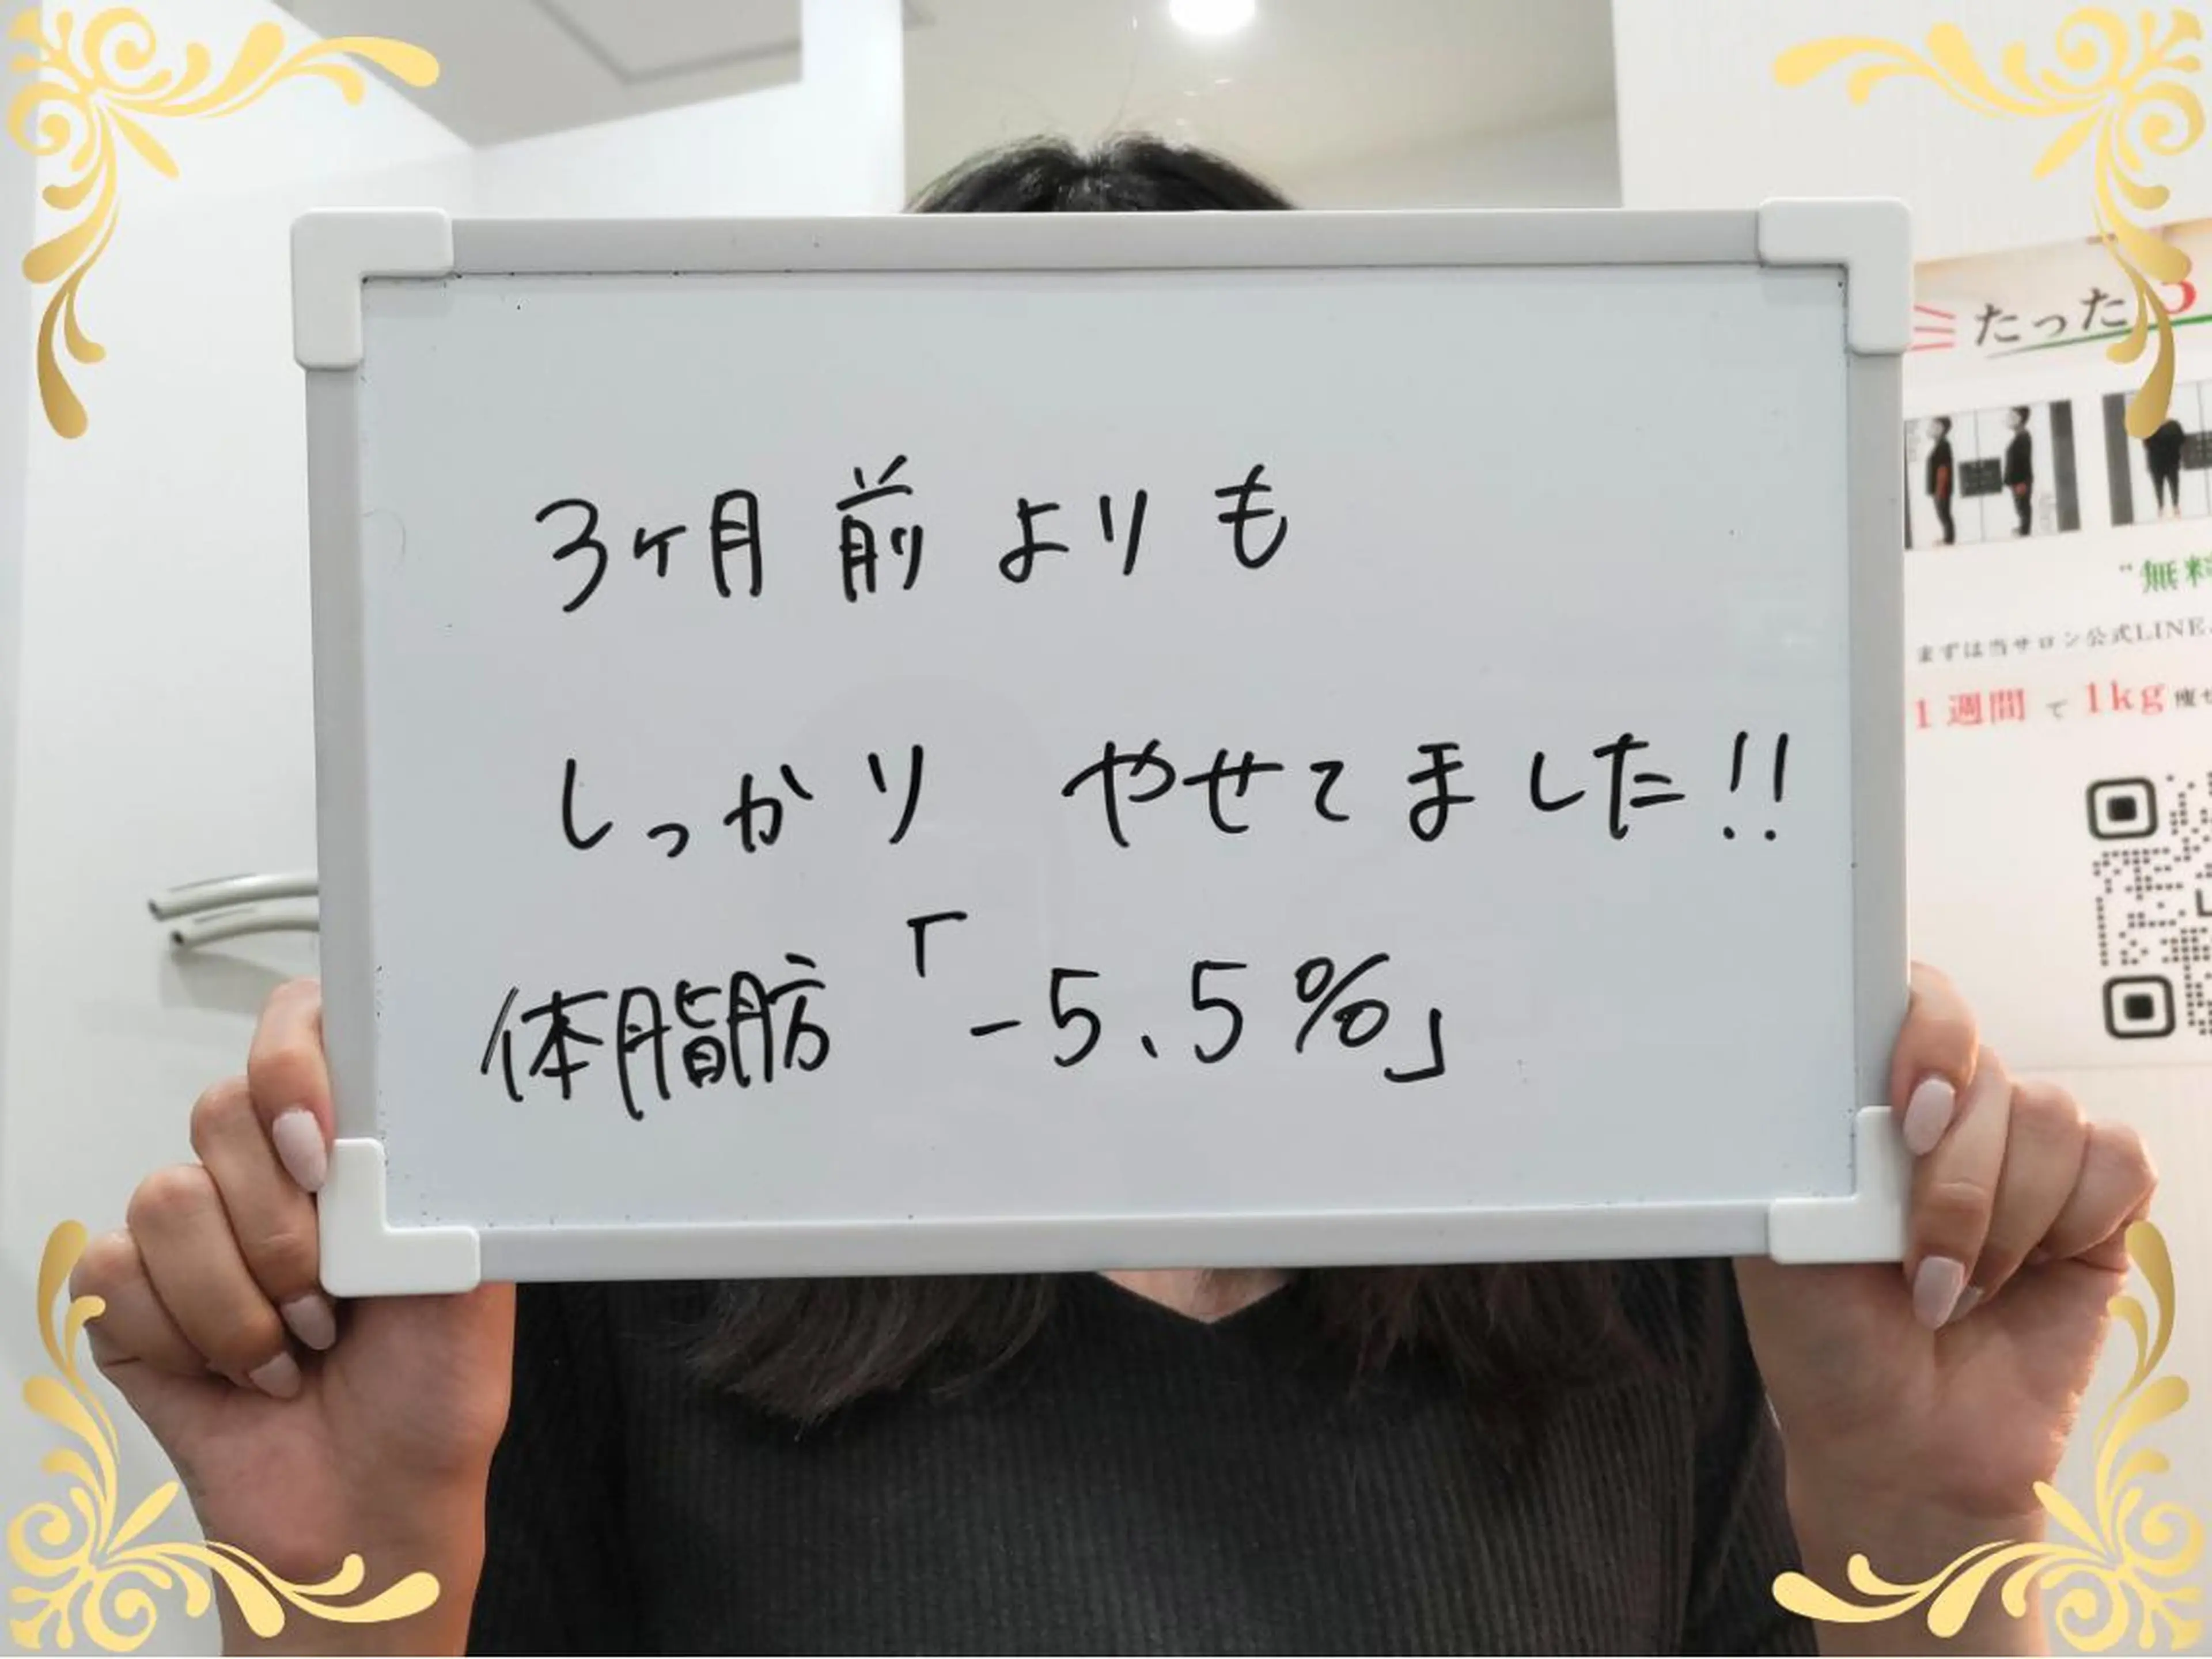 3ヶ月前よりも
しっかり やせてました!!
体脂肪「-5、5%」
たった3
"無料
まずは当サロン公式LINE
1週間で1kg痩せ